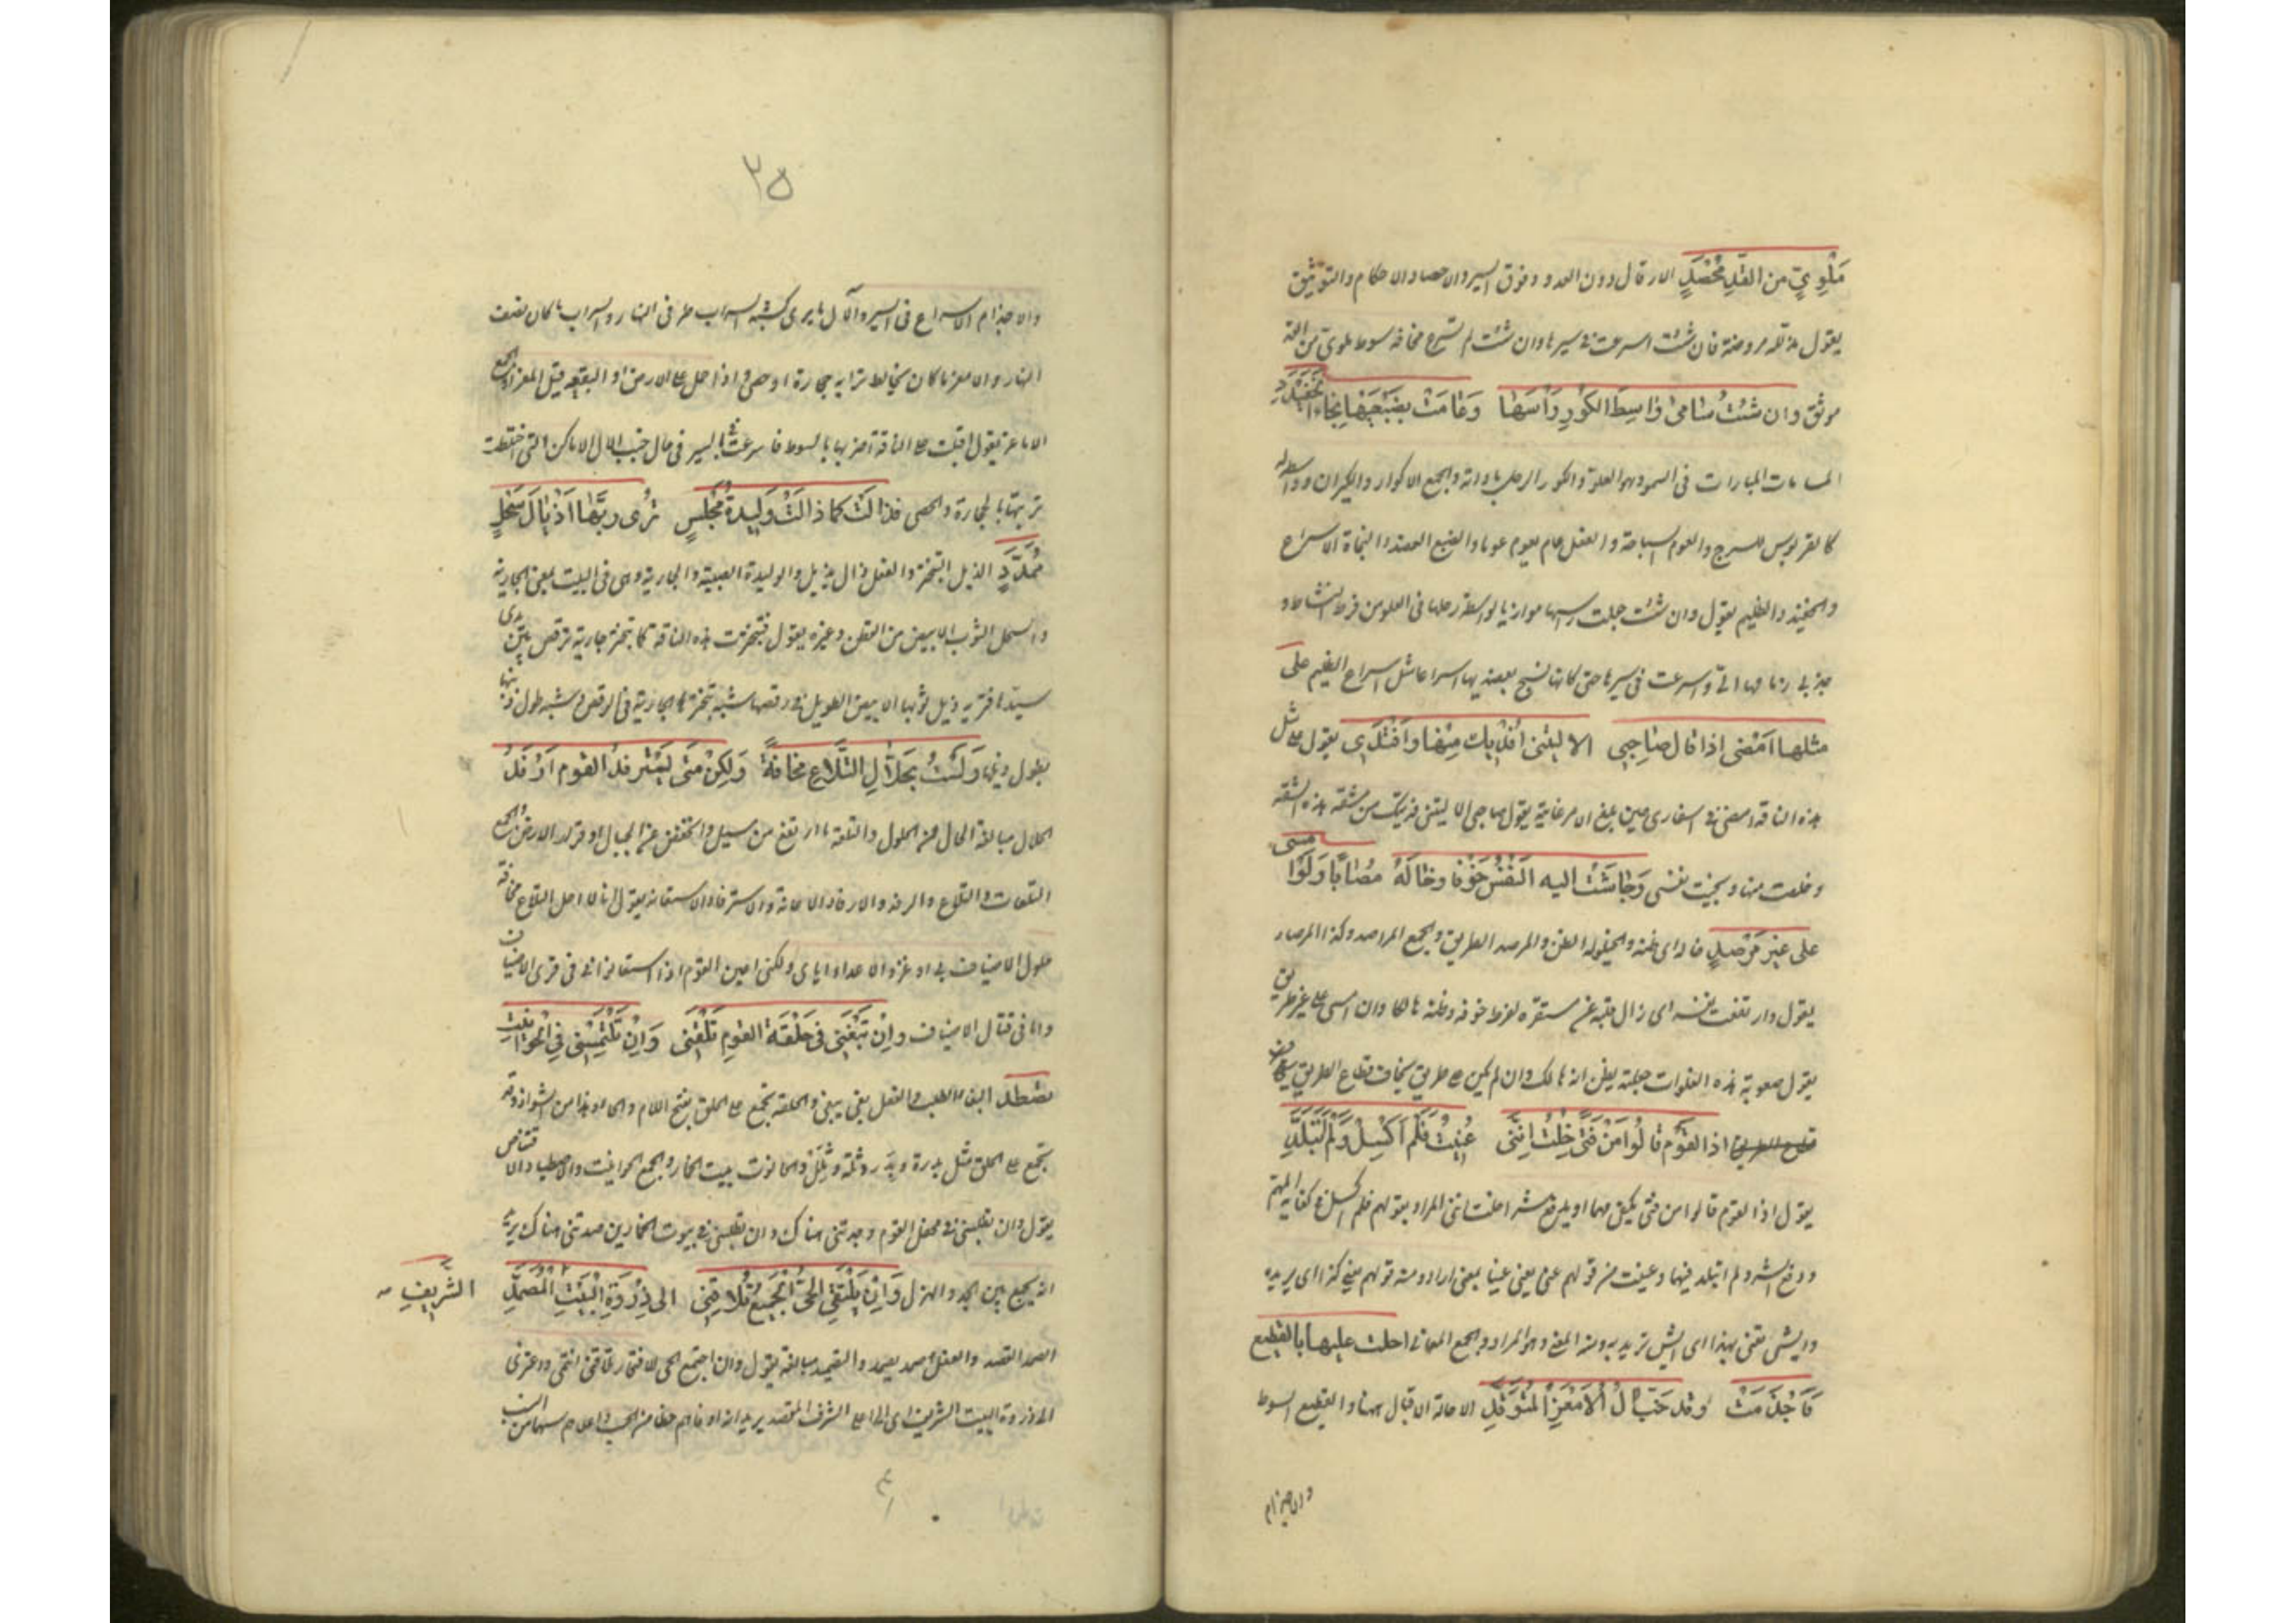 مَلْوِيٍّ من القدِّ مُحْصَدٍ الارقال دون العدو وفوق السير والاحصاد الاحكام والتوثيق
يقول هذه الناقة مروضة فان شئت اسرعت فى سيرها وان شئت لم تسرع مخافة سوط ملوى من القد
موثق وان شئتُ سامىٰ واسِطَ الكُورِ رَأسُها وَعَامَتْ بِضَبْعَيْهَا نَجَاءَ الخَفَيْدَدِ
المسامات المبارات فى السمو وهو العلو والكور الرحل باداته والجمع الاكوار والكيران وواسطه له
كالقربوس للسرج والعوم السباحة والفعل عام يعوم عوما والضبع العضد والنجاة الاسراع
والخفيدد الظليم يقول وان شئت جعلت رأسها موازيا لواسطة رحلها فى العلو من فرط النشاط و
جذبى زمامها الىّ واسرعت فى سيرها حتى كانها تسبح بعضديها اسراعا مثل اسراع الظليم على
مثلها اَمْضى اذا قال صَاحِبِى الا ليتنى اَفْدِيك مِنْها وَاَفْتَدِى يقول على مثل
هذه الناقة امضى فى اسفارى حين بلغ الامر غاية يقول صاحبى الا ليتنى فديتك من مشقة هذه الشقة
وخلصت منها ونجيت نفسى وَجَاشَتْ اليه النَّفْسُ خَوْفا وخَالَهُ مُصَابًا وَلَوْ اَمْسى
على غير مَرْصَدٍ خاله اى ظنه والخيلولة الظن والمرصد الطريق والجمع المراصد وكذا المرصاد
يقول وارتفعت نفسه اى زال قلبه عن مستقره لفرط خوفه وظنه هالكا وان امسى على غير طريق
يقول صعوبة هذه الفلوات جعلته يظن انه هالك وان لم يكن على طريق يخاف قطاع الطريق
اذا القوم قالُوا مَنْ فَتًى خِلْتُ اِنَّنِى عُنِيْتُ فَلَمْ اَكْسَلْ وَلَمْ اَتَبَلَّدِ
يقول اذا القوم قالوا من فتى يكفى مهما او يدفع شرا خلت اننى المراد بقولهم فلم اكسل فى كفاية المهم
ودفع الشر ولم اتبلد فيهما وعنيت من قولهم عنى يعنى عنيا بمعنى اراد ومنه قولهم يعنى كذا اى يريده
وايش تعنى بهذا اى ايش تريد به ومنه المعنى وهو المراد والجمع المعانى احلت عليها بالقطيع
فَاَجْذَمَتْ وقد خَبَّ اٰلُ الْاَمْعَزِ الْمُتَوَقِّدِ الاحالة الاقبال ههنا والقطيع السوط
والاجذام
٢٥
والاجذام الاسراع فى السير والآل ما يرى كشبه السراب طرفى النهار والسراب ما كان نصف
النهار والامعز ما كان يخالط ترابه حجارة او حصى واذا حمل على الارض او البقعة قيل المعزاء والجمع
الاماعز يقول اقبلت على الناقة اضربها بالسوط فاسرعت فى السير فى حال خبب آل الاماكن التى اختلطت
تربتها بالحجارة والحصى فذالَتْ كما ذالَتْ وَلِيدَةُ مَجْلِسٍ تُرِى رَبَّها اَذْيَالَ سَحْلٍ
مُمَدَّدِ الذيل التبختر والفعل ذال يذيل والوليدة الصبية والجارية وهى فى البيت بمعنى الجارية
والسحل الثوب الابيض من القطن وغيره يقول فتبخترت هذه الناقة كما تبختر جارية ترقص بين يدى
سيدها فتريه ذيل ثوبها الابيض الطويل فى رقصها شبه تبخترها بتبختر الجارية فى الرقص وشبه طول ذنبها
بطول ذيلها وَلَسْتُ بِحَلَّالِ التِّلَاعِ مَخَافَةً وَلكِنْ مَتى يَسْتَرْفِدِ القومُ اَرْفِدِ
الحلال مبالغة الحال من الحلول والتلعة ما ارتفع من مسيل وانخفض عن الجبال او قرار الارض والجمع
التلعات والتلاع والرفد والارفاد الاعانة والاسترفاد الاستعانة يقول انا لا احل التلاع مخافة
حلول الاضياف بى او غزو الاعداء اياى ولكنى اعين القوم اذا استعانوا بى فى قرى الاضياف
واما فى قتال الاضياف وان تَبْغِنِى فى حَلْقَةِ القومِ تَلْقَنِى وَاِنْ تَلْتَمِسْنِى فى الحَوَانِيْتِ
تصْطَدِ البغاء الطلب والفعل بغى يبغى والحلقة تجمع على الحلق بفتح اللام والحاء وهذا من الشواذ وقد
تجمع على الحلق مثل بدرة وبِدَر وثلة وثِلَل والحانوت بيت الخمار والجمع الحوانيت والاصطياد الاقتناص
يقول وان تطلبنى فى محفل القوم وجدتنى هناك وان تطلبنى فى بيوت الخمارين صدتنى هناك يريد
انه يجمع بين الجد والهزل وَاِنْ يَلْتَقِ الحَىُّ الجَمِيعُ تُلَاقِنِى الى ذِرْوَةِ الْبَيْتِ الْمُصَمَّدِ
الشَّرِيفِ
الصمد القصد والفعل صمد يصمد والتصميد مبالغة يقول وان اجتمع الحى للافتخار تلاقنى انتمى واعتزى
الى ذروة البيت الشريف اى الى اعلى الشرف المقصد يريد انه اوفاهم حظا من الحسب واعلاهم سهما من النسب